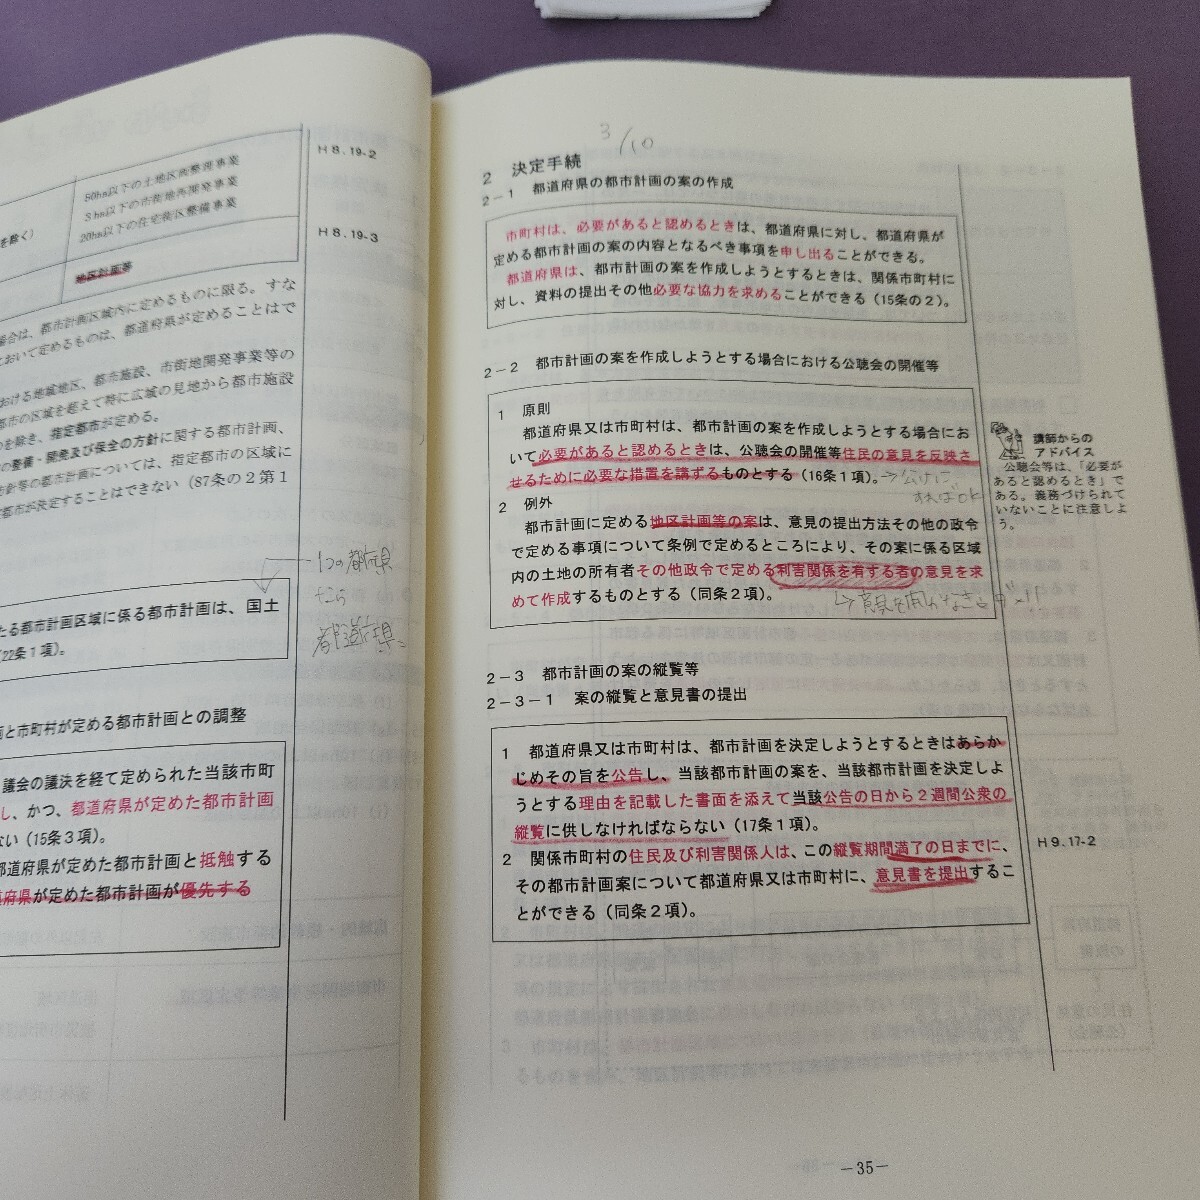 50ha以下の土地区画整理事業
3ha以下の市街地再開発事業
20ha以下の住宅街区整備事業
を除く)
地区計画等
H8.19-2
H8.19-3
場合は、都市計画区域内に定めるものに限る。すな
おいて定めるものは、都道府県が定めることはで
おける地域地区、都市施設、市街地開発事業等の
都市の区域を超えて特に広域の見地から都市施設
のを除き、指定都市が定める。
の整備・開発及び保全の方針に関する都市計画、
方針等の都市計画については、指定都市の区域に
都市が決定することはできない(87条の2第1
1つの都府県
なら
都道府県、
たる都市計画区域に係る都市計画は、国土
(22条1項)。
画と市町村が定める都市計画との調整
議会の議決を経て定められた当該市町
し、かつ、都道府県が定めた都市計画
ない(15条3項)。
都道府県が定めた都市計画と抵触する
道府県が定めた都市計画が優先する
3/10
2 決定手続
2-1 都道府県の都市計画の案の作成
市町村は、必要があると認めるときは、都道府県に対し、都道府県が
定める都市計画の案の内容となるべき事項を申し出ることができる。
都道府県は、都市計画の案を作成しようとするときは、関係市町村に
対し、資料の提出その他必要な協力を求めることができる(15条の2)。
2-2 都市計画の案を作成しようとする場合における公聴会の開催等
1 原則
都道府県又は市町村は、都市計画の案を作成しようとする場合にお
いて必要があると認めるときは、公聴会の開催等住民の意見を反映さ
せるために必要な措置を講ずるものとする(16条1項)。
すればOK
2 例外
都市計画に定める地区計画等の案は、意見の提出方法その他の政令
で定める事項について条例で定めるところにより、その案に係る区域
内の土地の所有者その他政令で定める利害関係を有する者の意見を求
めて作成するものとする(同条2項)。
講師からの
アドバイス
公聴会等は、「必要が
あると認めるとき」で
ある。義務づけられて
いないことに注意しよ
う。
2-3 都市計画の案の縦覧等
2-3-1 案の縦覧と意見書の提出
1 都道府県又は市町村は、都市計画を決定しようとするときはあらか
じめその旨を公告し、当該都市計画の案を、当該都市計画を決定しよ
うとする理由を記載した書面を添えて当該公告の日から2週間公衆の
縦覧に供しなければならない(17条1項)。
2 関係市町村の住民及び利害関係人は、この縦覧期間満了の日までに、
その都市計画案について都道府県又は市町村に、意見書を提出するこ
とができる(同条2項)。
H9.17-2
-35-